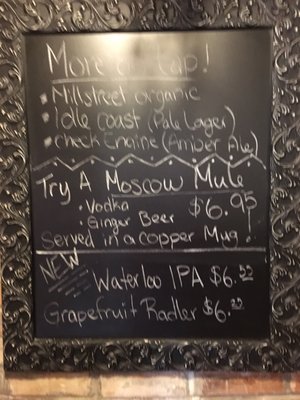 More on tap!
• Millstreet organic
• Idle coast (Pale Lager)
• check Engine (Amber Ale)
Try A Moscow Mule
• Vodka $6.95
• Ginger Beer
Served in a copper Mug!
NEW
Waterloo IPA $6.
Grapefruit Radler $6.